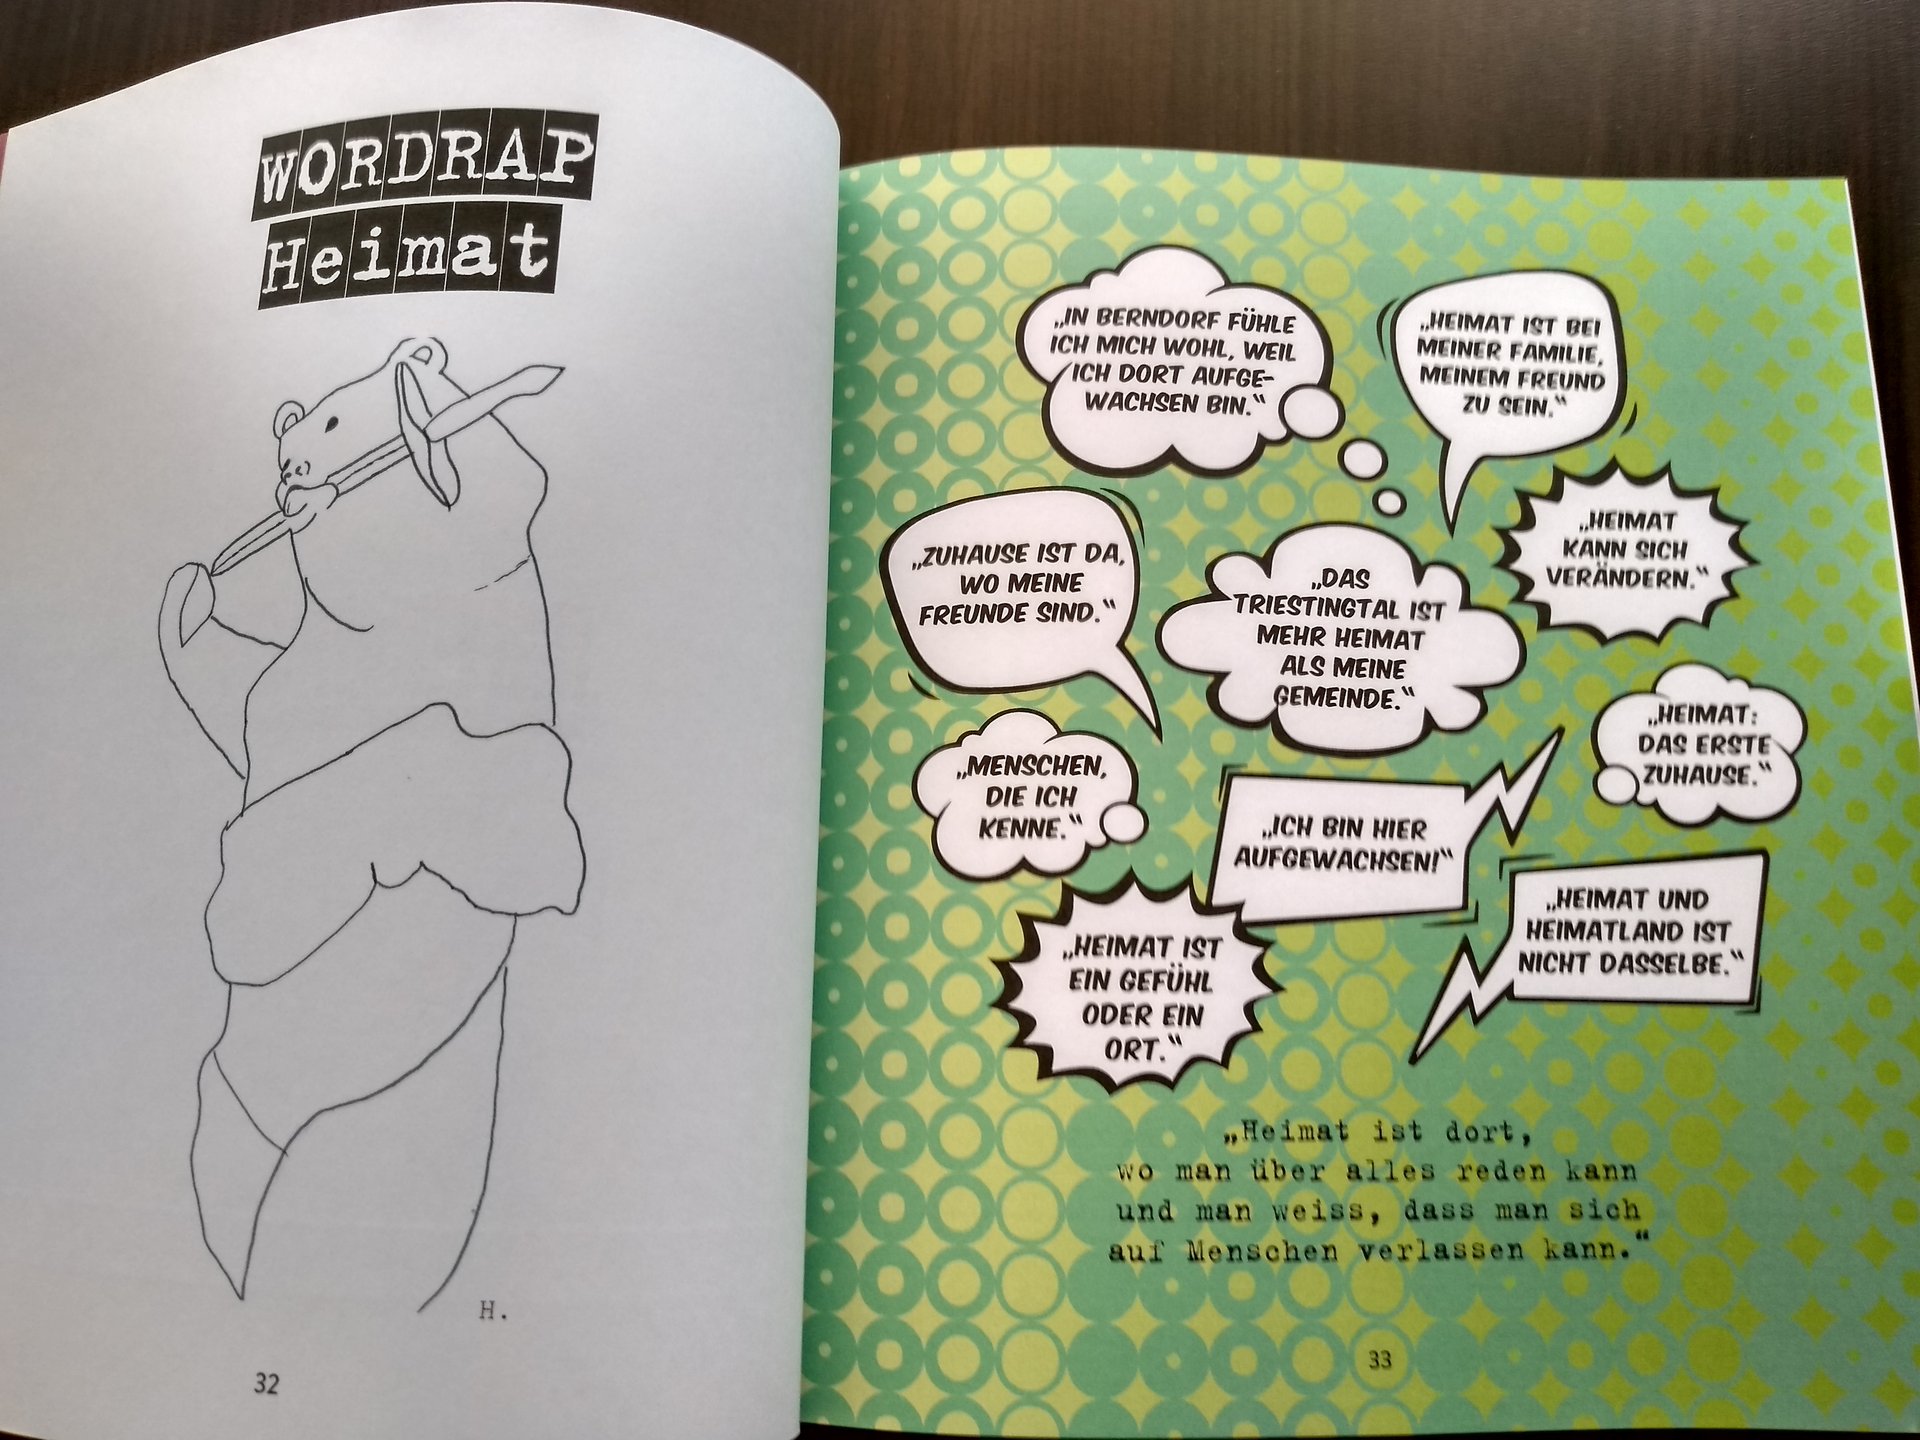 WORDRAP
Heimat
H.
32
„IN BERNDORF FÜHLE
ICH MICH WOHL, WEIL
ICH DORT AUFGE-
WACHSEN BIN.“
„HEIMAT IST BEI
MEINER FAMILIE,
MEINEM FREUND
ZU SEIN.“
„ZUHAUSE IST DA,
WO MEINE
FREUNDE SIND.“
„DAS
TRIESTINGTAL IST
MEHR HEIMAT
ALS MEINE
GEMEINDE.“
„HEIMAT
KANN SICH
VERÄNDERN.“
„MENSCHEN,
DIE ICH
KENNE.“
„ICH BIN HIER
AUFGEWACHSEN!“
„HEIMAT:
DAS ERSTE
ZUHAUSE.“
„HEIMAT IST
EIN GEFÜHL
ODER EIN
ORT.“
„HEIMAT UND
HEIMATLAND IST
NICHT DASSELBE.“
„Heimat ist dort,
wo man über alles reden kann
und man weiss, dass man sich
auf Menschen verlassen kann.“
33